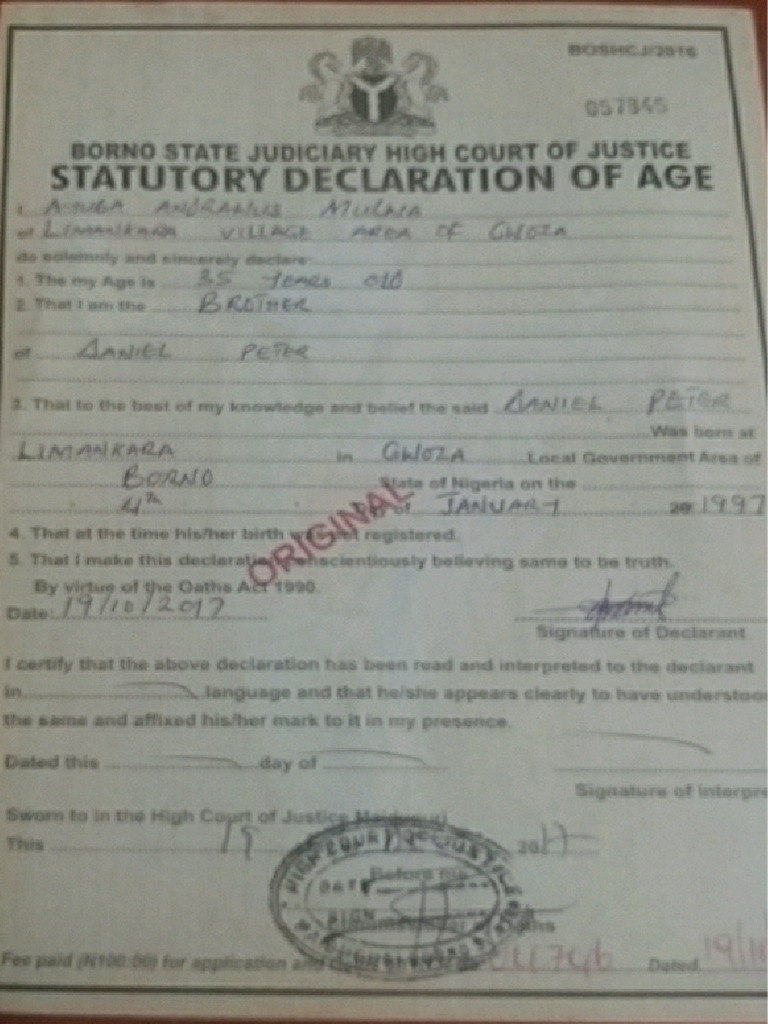 BOSHCJ/2016
057845
BORNO STATE JUDICIARY HIGH COURT OF JUSTICE
STATUTORY DECLARATION OF AGE
I
of LIMANKARA VILLAGE AREA OF GWOZA
do solemnly and sincerely declare:
1. The my Age is 35 years OLD
2. That I am the BROTHER
of DANIEL PETER
3. That to the best of my knowledge and belief the said DANIEL PETER
Was born at
LIMANKARA in GWOZA Local Government Area of
BORNO State of Nigeria on the
4th Day of JANUARY 20 1997
4. That at the time his/her birth was not registered.
5. That I make this declaration conscientiously believing same to be truth.
By virtue of the Oaths Act 1990.
ORIGINAL
Date: 19/10/2017
Signature of Declarant
I certify that the above declaration has been read and interpreted to the declarant
in language and that he/she appears clearly to have understoo
the same and affixed his/her mark to it in my presence.
Dated this day of
Signature of Interpre
Sworn to in the High Court of Justice Maiduguri
This 19 2017
HIGH COURT OF JUSTICE
DATE
Before me
SIGN
Fee paid (N100:00) for application and Dated 19/10